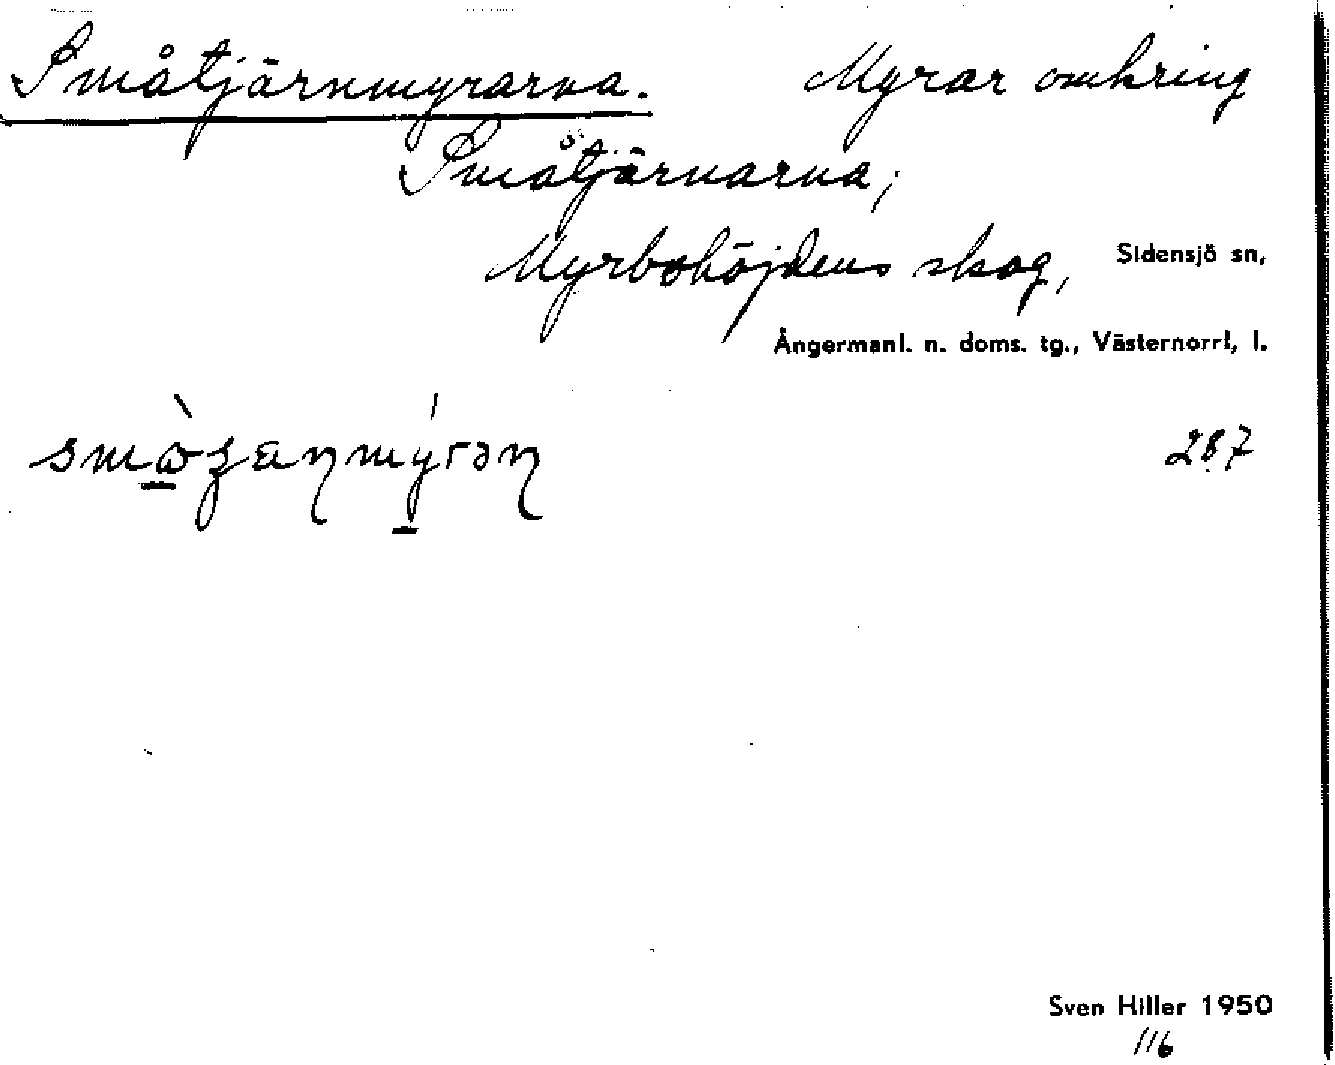 Småtjärnmyrarna. Myrar omkring
Småtjärnarna,
Myrbohöjdens skog, Sidensjö sn,
Ångermanl. n. doms. tg., Västernorrl, l.
287
Sven Hiller 1950
116